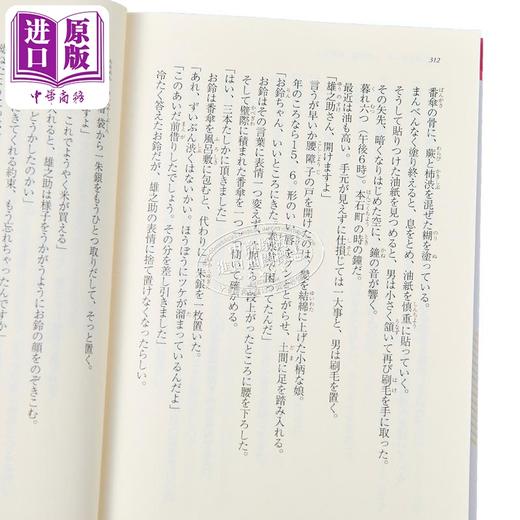 進口原版
中華商務
312
番傘の骨に、蕨と柿渋を混ぜた糊を塗っている。
まんべんなく塗り終えると、息をとめ、油紙を慎重に貼っていく。
そうして貼りつけた油紙を見つめると、男は小さく頷いて再び刷毛を手に取った。
その矢先、暗くなりはじめた空に、鐘の音が響く。
暮れ六つ(午後6時)。本石町の時の鐘だ。
最近は油も高い。手元が見えずに仕損じては一大事と、男は刷毛を置く。
「雄之助さん、開けますよ」
言うが早いか腰障子の戸を開けたのは、髪を結綿に上げた小柄な娘。
年のころなら15、6。形のいい唇をツンととがらせ、土間に足を踏み入れる。
「お鈴ちゃん、いいところにきた
困ってたんだ」
お鈴はその言葉に表情一つ変えず、
段上がったところに腰を下ろした。
そして壁際に積まれた番傘を一つ
確かめる。
「はい、三本たしかに頂きました」
お鈴は番傘を風呂敷に包むと、代わりに一朱銀を一枚置いた。
「あれ、ずいぶん渋くはないかい。ほうぼうにツケが溜まっているんだよ」
「このあいだ前借りしたでしょう。その分を差し引きました」
冷たく答えたお鈴だが、雄之助の表情に捨て置けなくなったらしい。
袋から一朱銀をもうひとつ取りだして、そっと置く。
すよ」
これでようやく米が買える」
れると、雄之助は様子をうかがうようにお鈴の顔をのぞきこむ。
どうかしたのかい」
きてくれる約束、もう忘れちゃったんですか